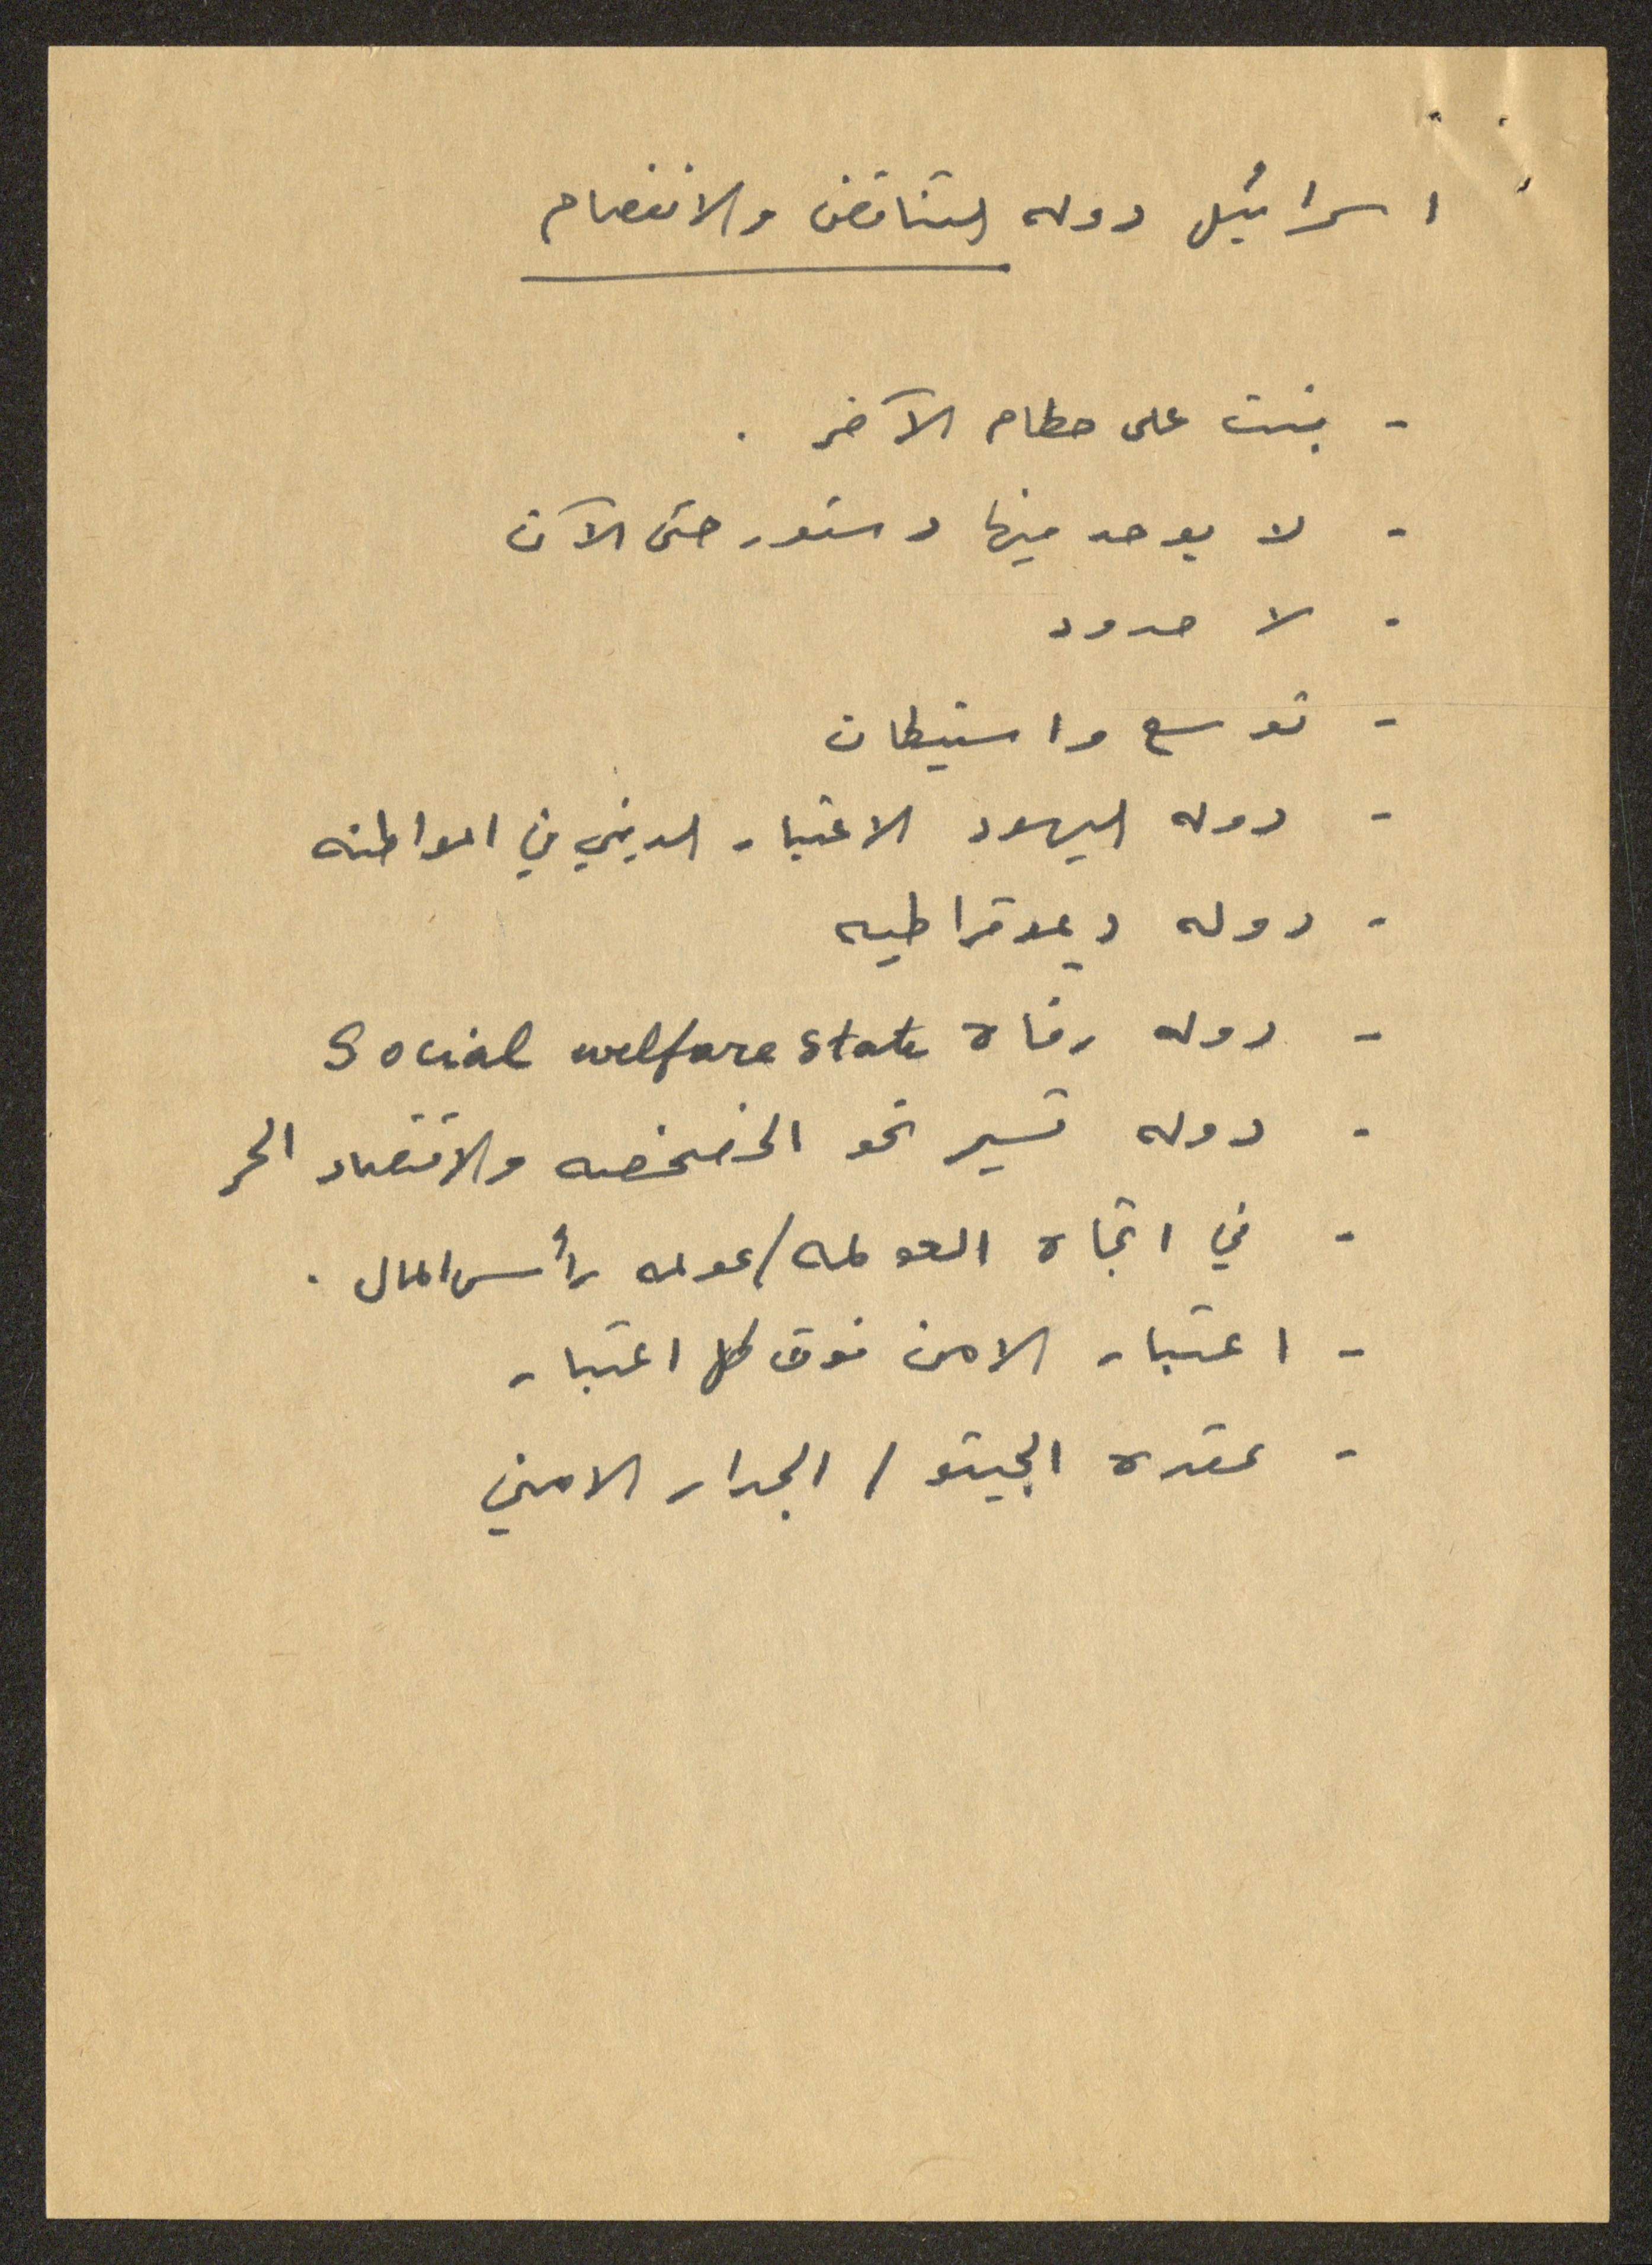 اسرائيل دوله التناقض والانفصام
- بنيت على حطام الآخر .
- لا يوجد فيها دستور حتى الآن
- لا حدود
- توسع واستيطان
- دوله اليهود الاعتبار الديني في المواطنه
- دوله ديموقراطيه
- دوله رفاة Social welfare state
- دوله تسير نحو الخصخصه والاقتصاد الحر
- في اتجاه العولمه/عولمه رأس المال .
- اعتبار الامن فوق كل اعتبار
- عقدة الجيتو / الجدار الامني